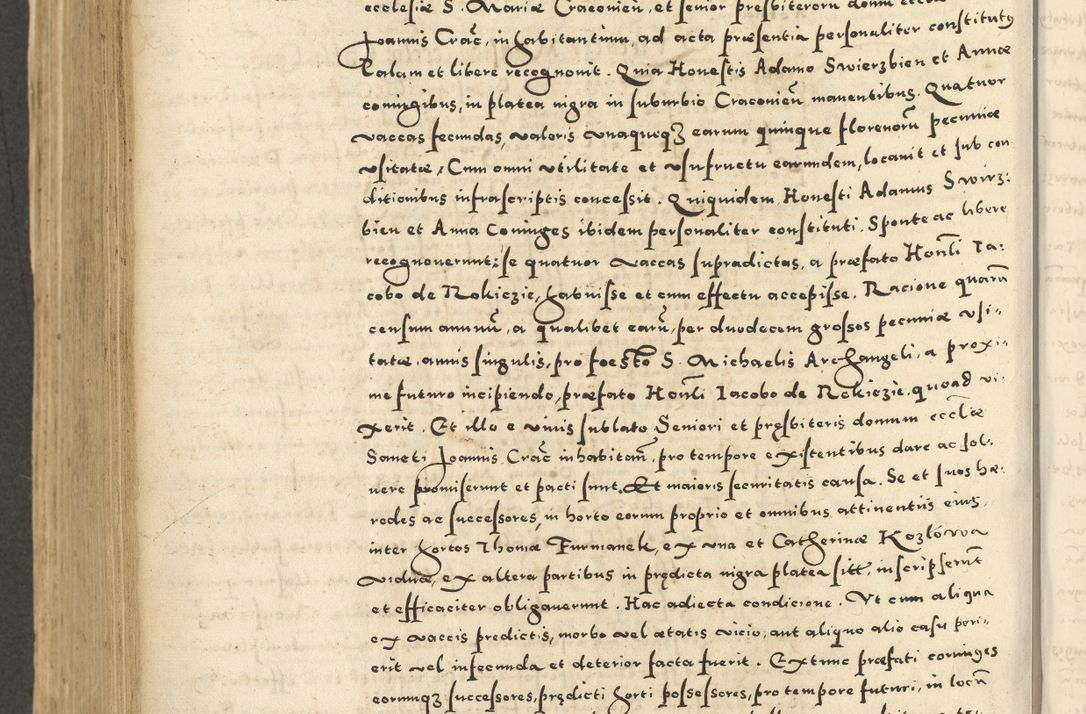 ecclesiæ S. Mariæ Craconień, et senior presbiterorũ domũ
Joannis Crać, inhabitantium, ad acta præsentia personaliter constitutus
Palam et libere recognouit. Quia Honestis Adamo Swierzbien et Annæ
coniugibus, in platea nigra in suburbio Craconień manentibus. Quatuor
vaccas fecundas, valoris vnaqueqȝ earum quinque florenorũ pecuniæ
vsitatæ, Cum omni vtilitate et vsufructu earumdem, locauit et sub con
ditionibus infrascriptis concessit. Quiquidem Honesti Adamus Swirz:
bien et Anna Coniuges ibidem personaliter constituti. Sponte ac libere
recognouerunt: se quatuor vaccas supradictas, a præfato Honĺi Ia:
cobo de Rokiczie, habuisse et cum effectu accepisse. Racione quarũ
censum annuũ, a qualibet earũ, per duodecem grossos pecuniæ vsi-
tatæ, annis singulis, pro foesto S. Michaelis Archangeli, a proxi-
me futuro incipiendo, præfato Honĺi Iacobo de Rokiczie, quoad vi-
xerit. Et illo e viuis sublato Seniori et pręsbiteris domum eccĺiæ
Sancti Joannis Crać inhabitañ, pro tempore existentibus dare ac sol-
uere promiserunt et pacti sunt, Et maioris securitatis causa. Se et suos hæ-
redes ac successores, in horto eorum proprio et omnibus attinentiis eius,
inter hortos Thomæ Furmanek, ex vna et Catherinæ Kozlowa
viduæ, ex altera partibus in prędicta nigra platea sitĩ, inscripserũt
et efficaciter obligauerunt. Hac adiecta condicione. Vt cum aliqua
ex vaccis predictis, morbo vel ætatis vicio, aut aliquo alio casu peri-
erit vel infecunda et deterior facta fuerit. Extunc præfati coniuges
eorumqȝ successores, prędicti horti possessores, pro tempore futuri, in locũ